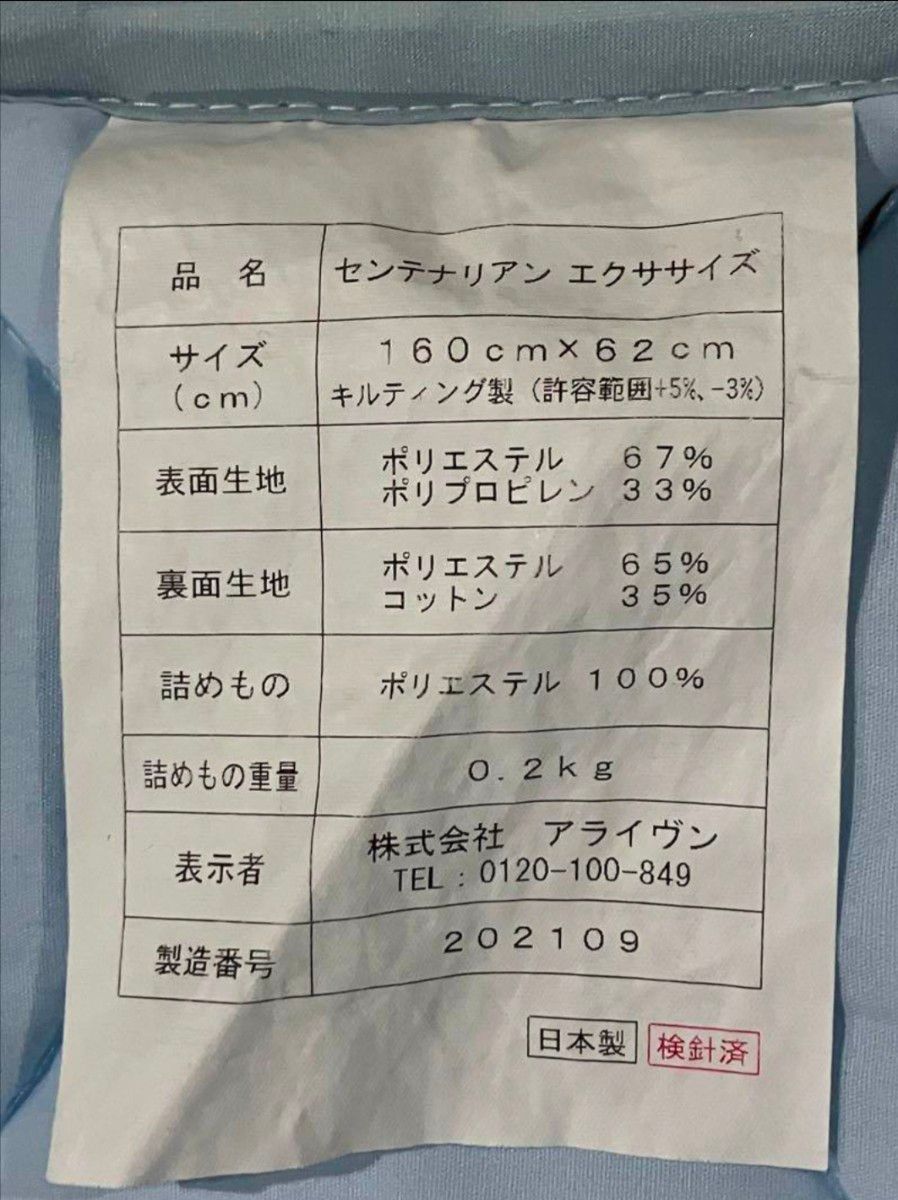 品 名 センテナリアン エクササイズ
サイズ
(cm)
160cm×62cm
キルティング製(許容範囲+5%、-3%)
表面生地
ポリエステル 67%
ポリプロピレン 33%
裏面生地
ポリエステル 65%
コットン 35%
詰めもの ポリエステル 100%
詰めもの重量 0.2kg
表示者
株式会社 アライヴン
TEL:0120-100-849
製造番号 202109
日本製 検針済